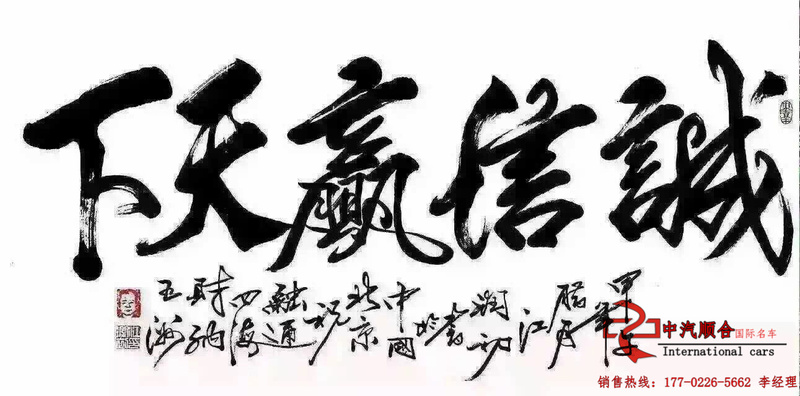 誠信贏天下
腊月
江
润
书於
中國
北京
祝
融通
四海
财納
五洲
中汽顺合国际名车
International cars
销售热线：177-0226-5662 李经理